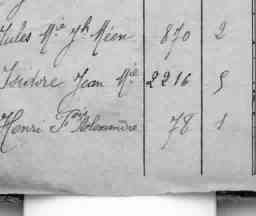 Jules Mie Jh Méen 870 2
Isidore Jean Mie 2216 5
Henri Fois Alexandre 78 1